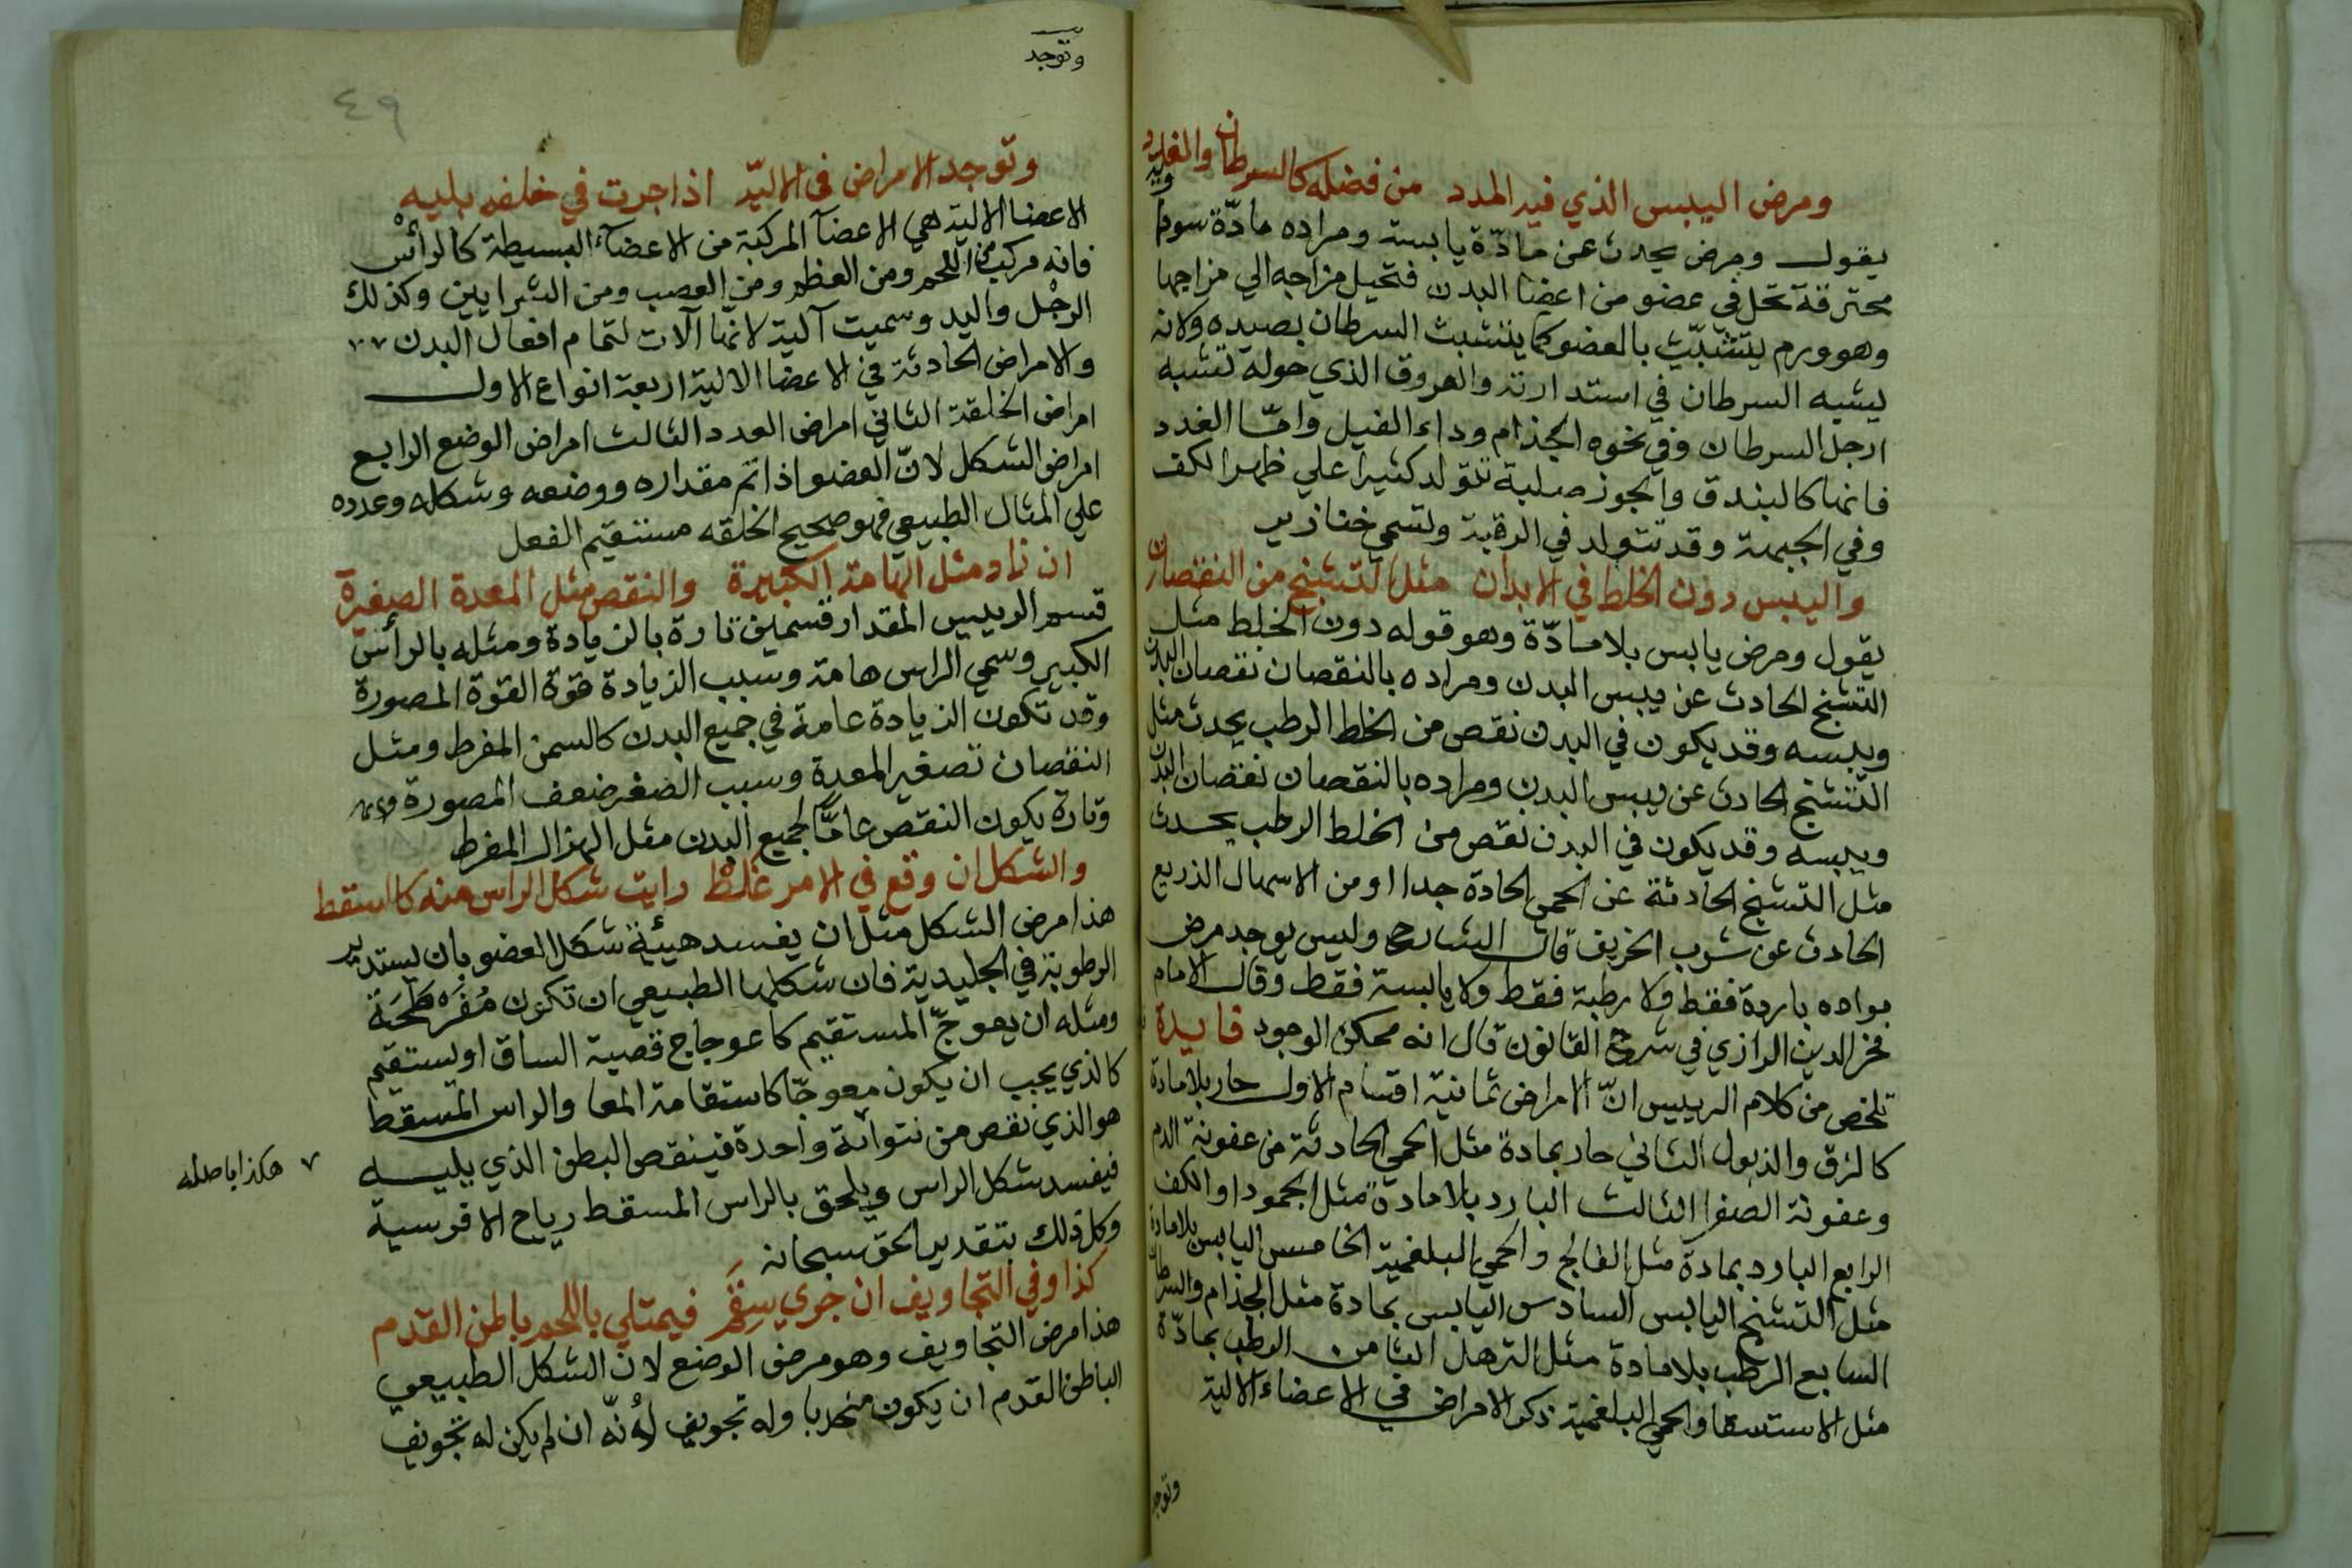 ومرض اليبس الذي فيه المدد من فضله كالسرطان والغدد
يقول ومرض يحدث عن مادّة يابسة ومراده مادّة سودا
محترقة تحل في عضو من اعضا البدن فتحيل مزاجه الي مزاجها
وهو ورم يتشبّث بالعضو كما يتشبث السرطان بصيده ولانه
يشبه السرطان في استدارته والعروق الذي حوله تشبه
ارجل السرطان وفي نحوه الجذام وداء الفيل وامّا الغدد
فانها كالبندق والجوز صلبة تتولد كثيرا علي ظهر الكف
وفي الجبهة وقد تتولد في الرقبة وتسمي خنازير
واليبس دون الخلط في الابدان مثل التشنج من النقصان
يقول ومرض يابس بلا مادّة وهو قوله دون الخلط مثل
التشنج الحادث عن يبس البدن ومراده بالنقصان نقصان البدن
ويبسه وقد يكون في البدن نقص من الخلط الرطب يحدث مثل
التشنج الحادث عن يبس البدن ومراده بالنقصان نقصان البدن
ويبسه وقد يكون في البدن نقص من الخلط الرطب يحدث
مثل التشنج الحادثة عن الحمي الحادة جدا او من الاسهال الذريع
الحادث عن شرب الخريف قال الشارح وليس يوجد مرض
بواده باردة فقط ولا رطبة فقط ولا يابسة فقط وقال الامام
فخر الدين الرازي في شرح القانون قال انه ممكن الوجود فايدة
تلخص من كلام الرييس انّ الامراض ثمانية اقسام الاول حار بلا مادة
كالدق والذبول الثاني حار بمادة مثل الحمي الحادثة من عفونة الدم
وعفونة الصفرا الثالث البارد بلا مادة مثل الجمود او الكف
الرابع البارد بمادة مثل الفالج والحمي البلغمية الخامس اليابس بلا مادة
مثل التشنج اليابس السادس اليابس بمادة مثل الجذام والسرطان
السابع الرطب بلا مادة مثل الترهل الثامن الرطب بمادّة
مثل الاستسقا والحمي البلغمية ذكر الامراض في الاعضاء الالية
وتوجد
وتوجد
٤٩
وتوجد الامراض في الاليّه اذا جرت في خلقه بليه
الاعضا الالية هي الاعضآ المركبة من الاعضآء البسيطة كالرأس
فانه مركب من اللحم ومن العظم ومن العصب ومن الشرايين وكذلك
الرجل واليد وسميت آلية لانها آلات لتمام افعال البدن
والامراض الحادثة في الاعضا الالية اربعة انواع الاول
امراض الخلقة الثاني امراض العدد الثالث امراض الوضع الرابع
امراض الشكل لانّ العضو اذا تم مقداره ووضعه وشكله وعدده
علي المثال الطبيعي فهو صحيح الخلقه مستقيم الفعل
ان زاد مثل الهامة الكبيرة والنقص مثل المعدة الصغيرة
قسم الرييس المقدار قسمين تارة بالزيادة ومثله بالرأس
الكبير وسمي الراس هامة وسبب الزيادة قوة القوة المصورة
وقد تكون الزيادة عامة في جميع البدن كالسمن المفرط ومثل
النقصان تصغير المعدة وسبب الصغر ضعف المصورة
وتارة يكون النقص عامًّا لجميع البدن مثل الهزال المفرط
والشكل ان وقع في الامر غلط رايت شكل الراس منه كالسقط
هذا مرض الشكل مثل ان يفسد هيئة شكل العضو بان يستدير
الرطوبة في الجليدية فان شكلها الطبيعي ان تكون مُفَرطَحَة
ومثله ان يعوجّ المستقيم كاعوجاج قصبة الساق او يستقيم
كالذي يجب ان يكون معوجّا كاستقامة المعا والراس المسقط
هو الذي نقص من نتوائة واحدة فينقص البطن الذي يليه
فيفسد شكل الراس ويلحق بالراس المسقط رياح الافرسية
وكل ذلك بتقدير الحق سبحانه
٧ هكذا باصله
كذا وفي التجاويف ان جري سقم فيمتلي باللحم باطن القدم
هذا مرض التجاويف وهو مرض الوضع لان الشكل الطبيعي
الباطن القدم ان يكون منحدبا وله تجويف لأنّه ان لم يكن له تجويف